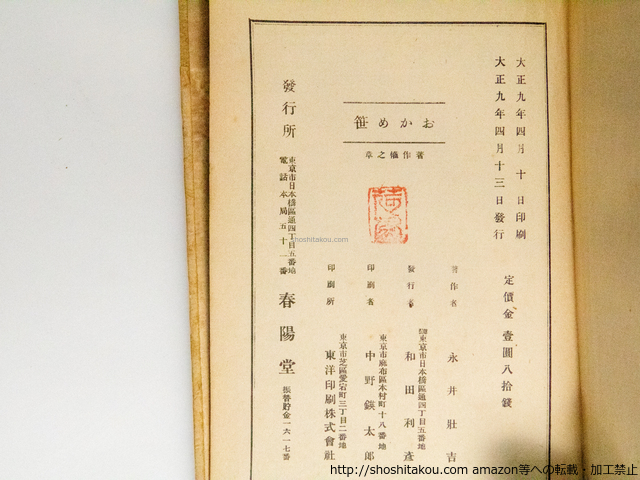 大正九年四月十日印刷
大正九年四月十三日發行
定價金壹圓八拾錢
おかめ笹
著作權之章
著作者 永井壯吉
東京市日本橋區通四丁目五番地
發行者 和田利彥
東京市麻布區本村町十八番地
印刷者 中野鍈太郎
東京市芝區愛宕町三丁目二番地
印刷所 東洋印刷株式會社
發行所
東京市日本橋區通四丁目五番地
電話本局五十一番
春陽堂
振替貯金一六一七番
shoshitakou.com
http://shoshitakou.com amazon等への転載・加工禁止